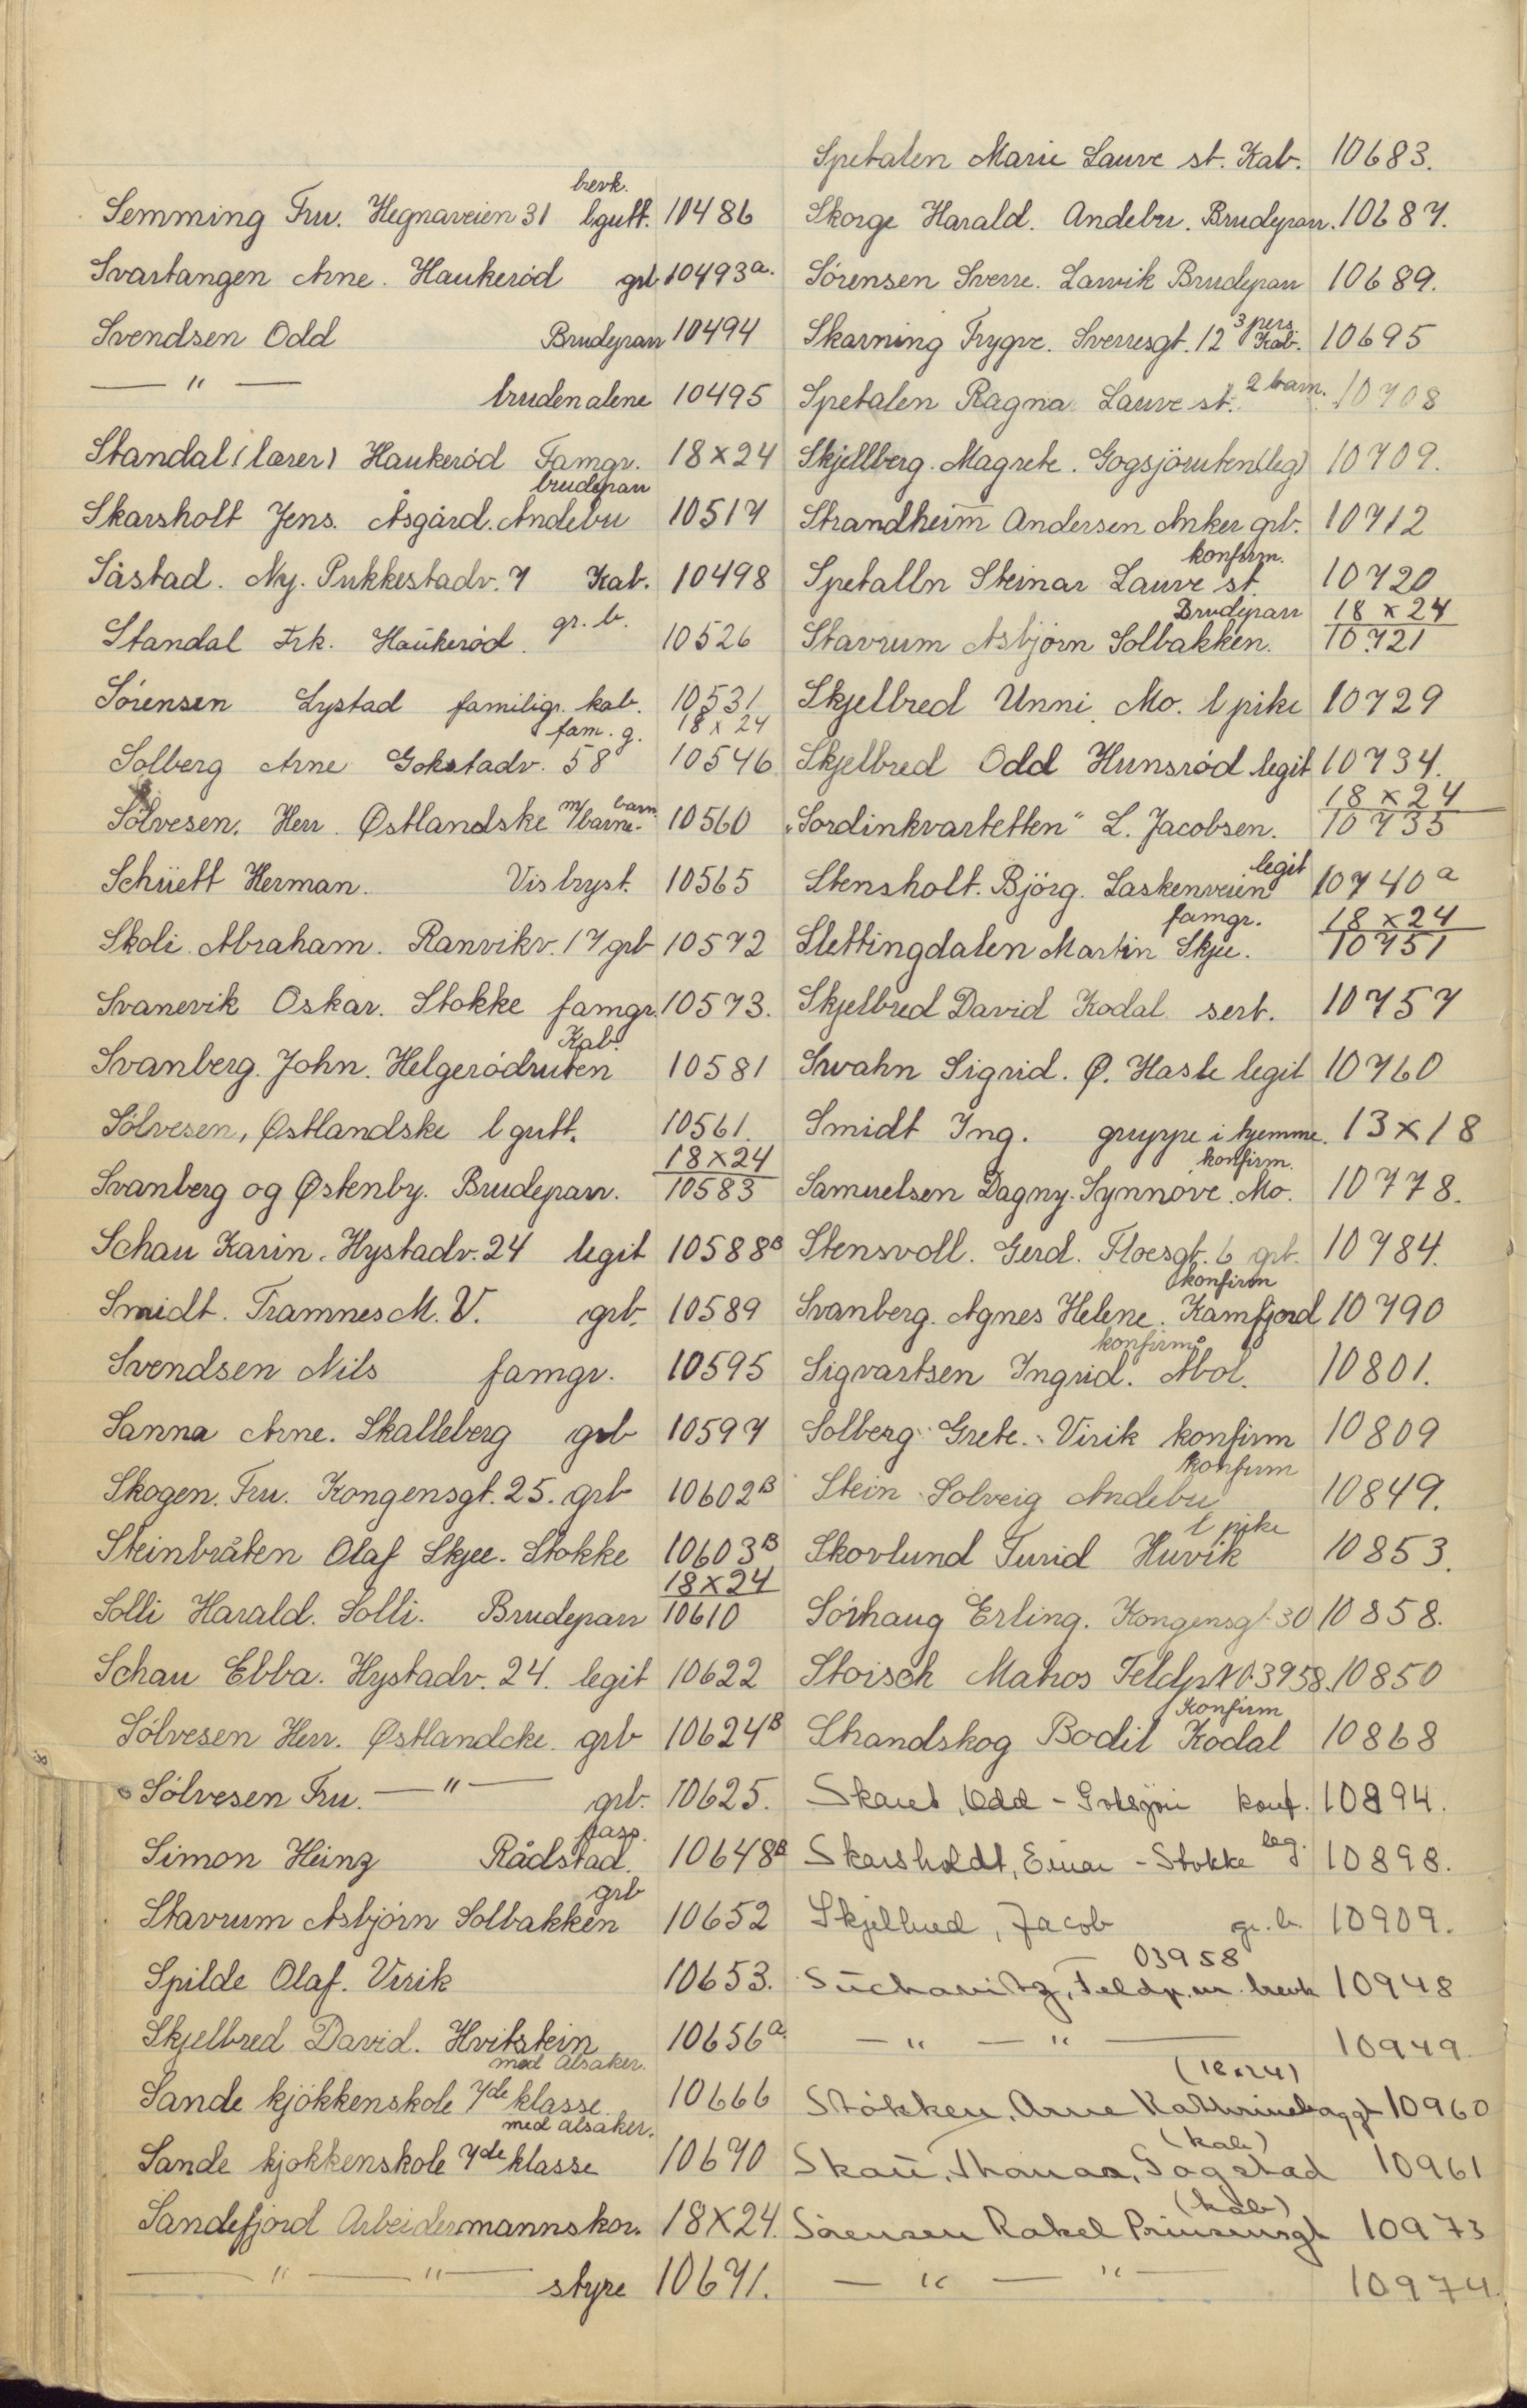 brevk.
Semming Fru. Hegnaveien 31 lgutt. 10486
Svartangen Arne. Haukerød grb 10493a.
Svendsen Odd Brudepar 10494
— " — bruden alene 10495
Standal (lærer) Haukerød Famgr. 18x24
brudepar
Skarsholt Jens. Åsgård. Andebu 10517
Såstad. Ny. Pukkestadv. 7 Kab. 10498
Standal Frk. Haukerød. gr. b. 10526
Sørensen Lystad familigr. kab. 10531
fam. g. 18 x 24
Solberg Arne Gokstadv. 58 10546
barn
Sølvesen. Herr. Østlandske m/barne. 10560
Schüett Herman. Vis bryst. 10565
Skoli Abraham. Ranvikv. 17 grb 10572
Svanevik Oskar. Stokke famgr. 10573.
Kab.
Svanberg. John. Helgerødruten 10581
Sølvesen, Østlandske l gutt. 10561.
18x24
Svanberg og Østenby. Brudepar. 10583
Schau Karin. Hystadv. 24 legit 10588B
Smidt. Framnes M. V. grb. 10589
Svendsen Nils famgr. 10595
Sanna Arne. Skalleberg grb 10597
Skogen. Fru. Kongensgt. 25. grb 10602B
Steinbråten Olaf Skjee. Stokke 10603B
18x24
Solli Harald. Solli. Brudepar 10610
Schau Ebba. Hystadv. 24. legit 10622
Sølvesen Herr. Østlandcke. grb 10624B
Sølvesen Fru. — " — grb. 10625.
pass.
Simon Heinz Rådstad. 10648B
grb
Stavrum Asbjørn Solbakken 10652
Spilde Olaf. Virik 10653.
Skjelbred David. Hvitstein 10656a.
med Alsaker.
Sande kjøkkenskole 7de klasse. 10666
med Alsaker.
Sande kjøkkenskole 7de klasse 10670
Sandefjord Arbeidermannskor. 18x24.
— " — " — styre 10671.
Spetalen Marie Lauve st. Kab. 10683.
Skorge Harald. Andebu. Brudepar. 10687.
Sørensen Sverre. Larvik Brudepar 10689.
3 pers.
Skarning Trygve. Sverresgt. 12 Kab. 10695
Spetalen Ragna Lauve st. 2 barn. 10708
Skjellberg. Magrete. Gogsjøruten (leg) 10709.
Strandheim Andersen Anker grb. 10712
konfirm.
Spetalln Steinar Lauve st. 10720
Brudepar 18 x 24
Stavrum Asbjørn Solbakken. 10721
Skjelbred Unni. Mo. l pike 10729
Skjelbred Odd Hunsrød legit 10734.
18 x 24
"Sordinkvartetten" L. Jacobsen. 10735
legit
Stensholt. Bjørg. Laskenveien 10740a
famgr. 18 x 24
Slettingdalen Martin Skje. 10751
Skjelbred David Kodal sert. 10757
Swahn Sigrid. Ø. Hasle legit 10760
Smidt Ing. gruppe i hjemme. 13x18
konfirm.
Samuelsen Dagny. Synnøve. Mo. 10778.
Stensvoll. Gerd. Floesgt. 6 grb. 10784.
konfirm
Svanberg. Agnes Helene. Kamfjord 10790
konfirm
Sigvartsen Ingrid. Mo. 10801.
Solberg Grete. Virik konfirm 10809
konfirm
Stein Solveig Andebu 10849.
l pike
Skovlund Turid Huvik 10853.
Sørhaug Erling. Kongensgt. 30 10858.
Stoisch Matros Feldp N 03958. 10850
Konfirm
Strandskog Bodil Kodal 10868
Skaret, Odd - Goksjøn konf. 10894.
Skarsholdt, Einar - Stokke leg. 10898.
Skjelbred, Jacob gr. b. 10909.
03958
Suchanitz, Feldp. nr. brevk 10948
— " — " — 10949.
(18x24)
Støkken, Arne 10960
(kab)
Skau, Thomas, Gogstad 10961
(kab)
Sørensen Rakel Prinsensgt 10973
— " — " — 10974.